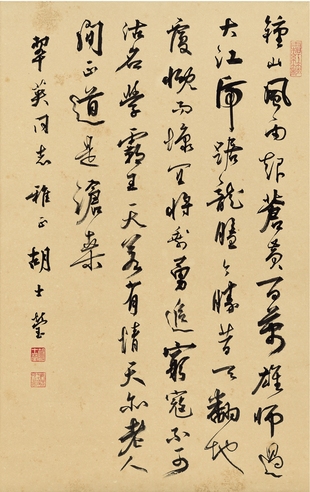 鐘山風雨起蒼黃百萬雄師過
大江虎踞龍盤今勝昔天翻地
覆慨而慷宜將剩勇追窮寇不可
沽名學霸王天若有情天亦老人
間正道是滄桑
翠英同志雅正胡士瑩